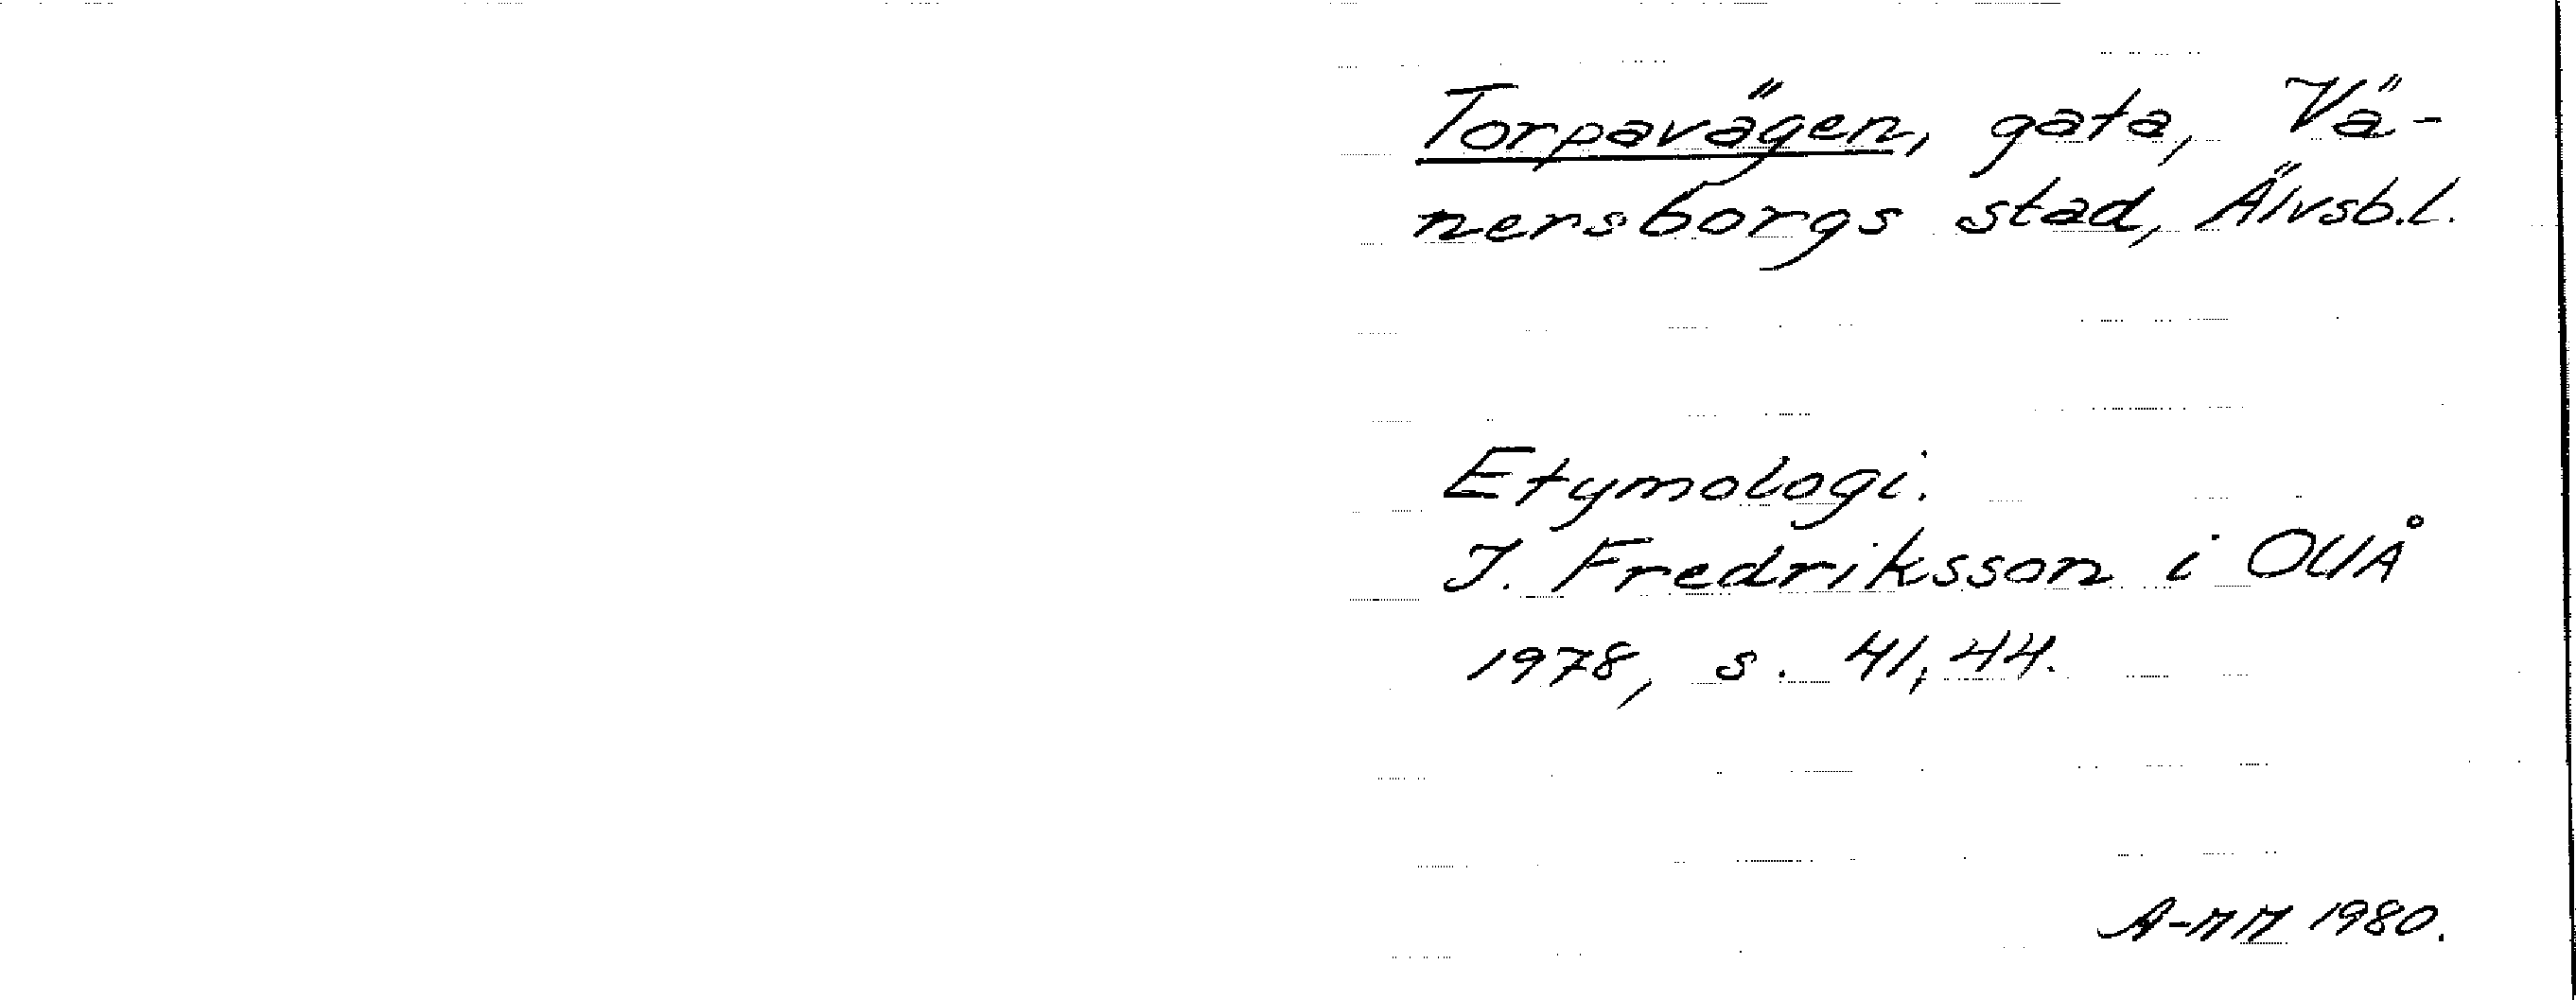 Torpavägen, gata, Vä-
nersborgs stad, Älvsb.l.
Etymologi.
I. Fredriksson i OUÅ
1978, s. 41, 44.
A-MM 1980.